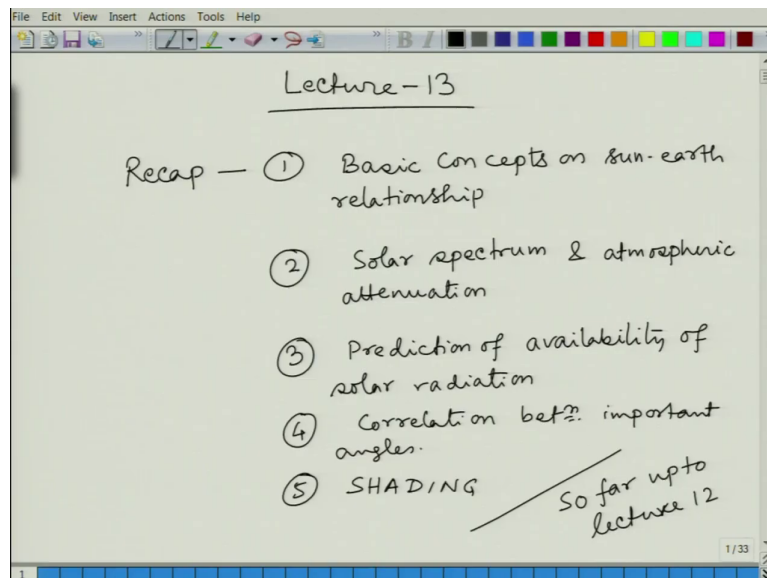 File Edit View Insert Actions Tools Help
B I
Lecture-13
Recap — ① Basic Concepts on sun-earth
relationship
② Solar spectrum & atmospheric
attenuation
③ Prediction of availability of
solar radiation
④ Correlation betn. important
angles.
⑤ SHADING
So far upto
lecture 12
1/33
1